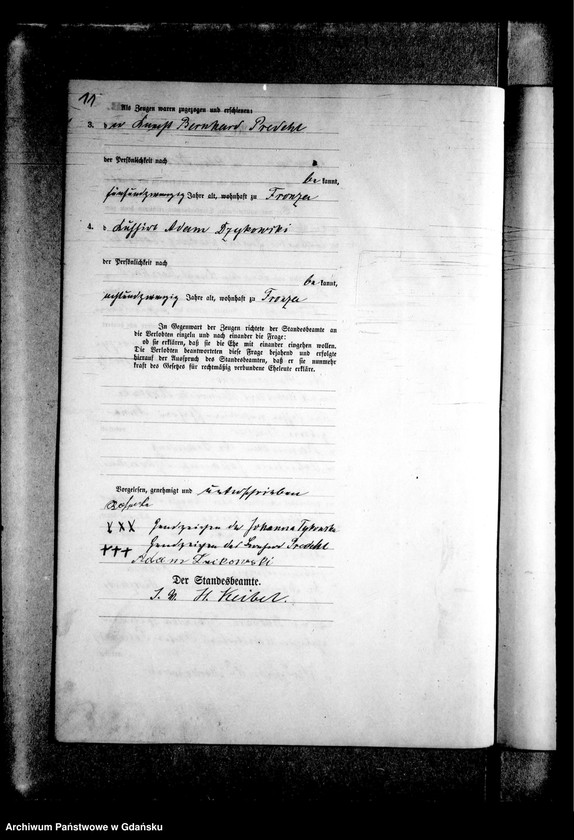 11
Als Zeugen waren zugezogen und erschienen:
3. der Knecht Bernhard Predehl
der Persönlichkeit nach
be kannt,
fünfundzwanzig Jahre alt, wohnhaft zu Fronza
4. Adam Dzykowski
der Persönlichkeit nach
be kannt,
achtundzwanzig Jahre alt, wohnhaft zu Fronza
In Gegenwart der Zeugen richtete der Standesbeamte an
die Verlobten einzeln und nach einander die Frage:
ob sie erklären, daß sie die Ehe mit einander eingehen wollen.
Die Verlobten beantworteten diese Frage bejahend und erfolgte
hierauf der Ausspruch des Standesbeamten, daß er sie nunmehr
kraft des Gesetzes für rechtmäßig verbundene Eheleute erkläre.
Vorgelesen, genehmigt und unterschrieben
XXX Handzeichen der Johanna
+++ Handzeichen des Bernhard Predehl
Adam
Der Standesbeamte.
J. V. H. Keibel.
Archiwum Państwowe w Gdańsku